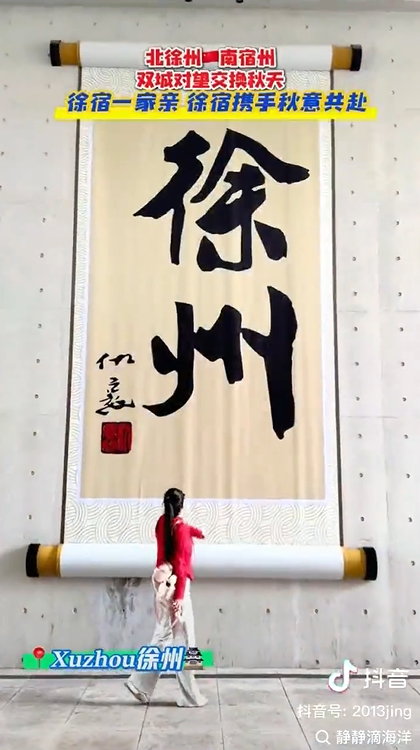 北徐州 南宿州
双城对望交换秋天
徐宿一家亲 徐宿携手秋意共赴
徐
州
Xuzhou徐州
抖音
抖音号: 2013jing
静静滴海洋